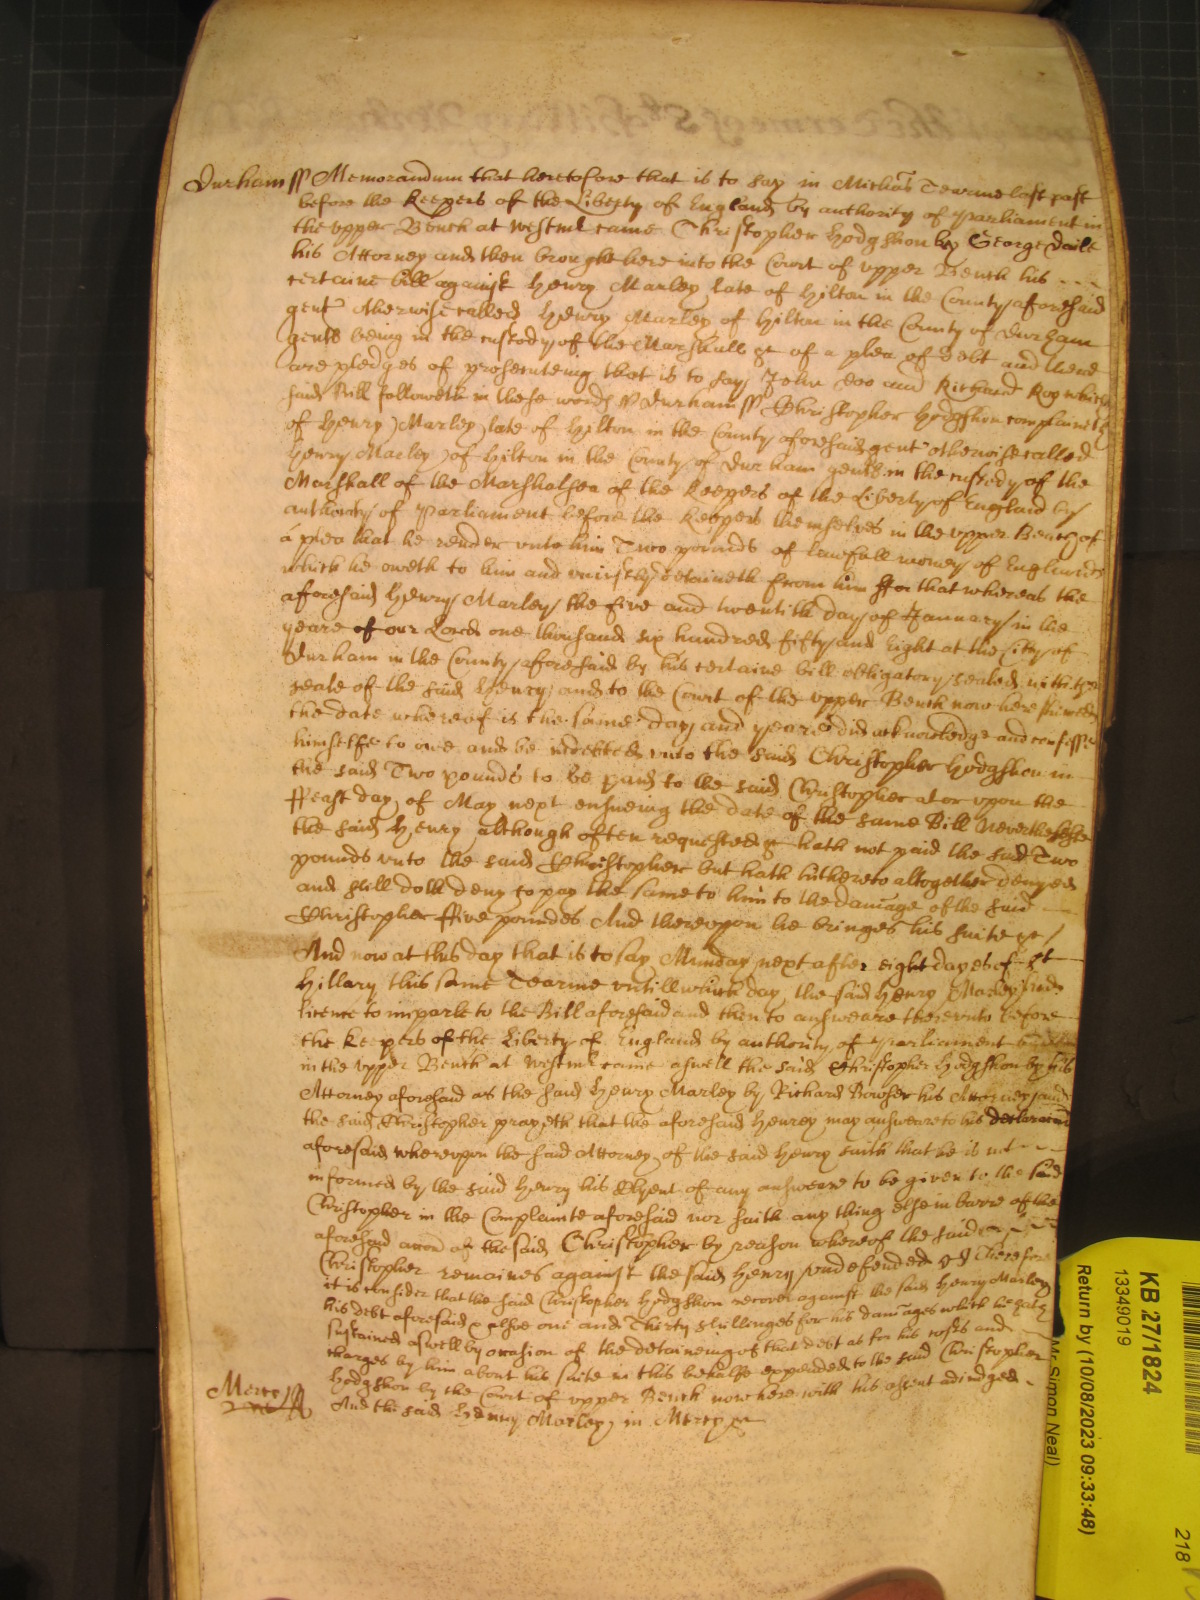 Durham ss Memorandum that heretofore that is to say in Michas Tearme last past
before the Keepers of the Liberty of England by authority of Parliament in
the upper Bench at Westmr came Christopher Hodgshon by George Daile
his Attorney and then brought here into the Court of upper Bench his
certaine bill against Henry Marley late of Hilton in the County aforesaid
gent otherwise called Henry Marley of Hilton in the County of Durham
gents being in the custody of the Marshall &c of a plea of debt and there
are pledges of prosecuteing that is to say John Doo and Richard Roo which
said Bill followeth in these words ss Durham ss Christopher Hodgshon complaineth
of Henry Marley late of Hilton in the County aforesaid gent otherwise called
Henry Marley of Hilton in the County of Durham gents in the custody of the
Marshall of the Marshalsea of the Keepers of the Liberty of England by
authority of Parliament before the Keepers themselves in the upper Bench of
a plea that he render unto him Two pounds of lawfull money of England
which he oweth to him and uniustly detaineth from him ffor that whereas the
aforesaid Henry Marley the five and twentith day of January in the
yeare of our Lord one thousand six hundred fifty and Eight at the City of
Durham in the County aforesaid by his certaine bill obligatory sealed with the
seale of the said Henry and to the Court of the upper Bench now here shewed
the date whereof is the same day and yeare did acknowledge and confesse
himselfe to owe and be indebted unto the said Christopher Hodgshon in
the said Two pounds to be paid to the said Christopher at or upon the
ffeast day of May next ensueing the date of the same Bill Neverthelesse
the said Henry although often requested &c hath not paid the said Two
pounds unto the said Christopher but hath hithereto altogether denyed
and still doth deny to pay the same to him to the damage of the said
Christopher ffive poundes And thereupon he bringes his suite &c
And now at this day that is to say Munday next after eight dayes of St
Hillary this same Tearme untill which day the said Henry Marley had
licence to imparle to the Bill aforesaid and then to answeare thereunto before
the Keepers of the Liberty of England by authority of Parliament
in the upper Bench at Westmr came aswell the said Christopher Hodgshon by his
Attorney aforesaid as the said Henry Marley by Richard Bowser his Attorney and
the said Christopher prayeth that the aforesaid Henrey may answeare to his declaracon
aforesaid whereupon the said Attorney of the said Henry saith that he is not
informed by the said Henry his Clyent of any answeare to be given to the said
Christopher in the Complainte aforesaid nor saith any thing else in barre of the
aforesaid accon of the said Christopher by reason whereof the said
Christopher remaines against the said Henry undefended &c Therefore
it is consider that the said Christopher Hodgshon recover against the said Henry Marley
his debt aforesaid & alsoe one and Thirty shillinges for his damages which he hath
sustained aswell by occasion of the detaineing of that debt as for his costs and
charges by him about his suite in this behalfe expended to the said Christopher
Hodgshon by the Court of upper Bench now here with his assent adiudged
Mercy And the said Henry Marley in Mercy &c
KB 27/1824
13349019
Return by (10/08/2023 09:33:48)
Mr Simon Neal)
218